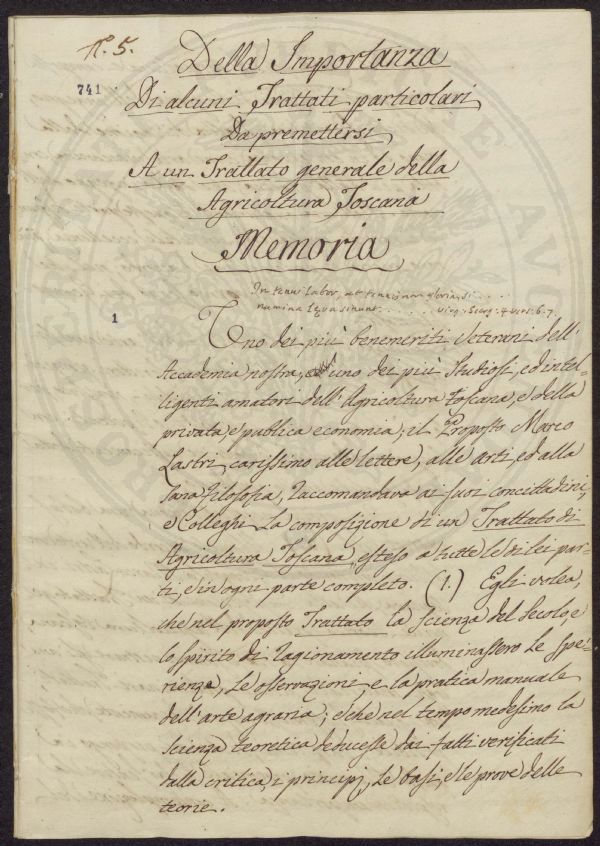 N. 5.
741
Della Importanza
Di alcuni Trattati particolari
Da premettersi
A un Trattato generale della
Agricoltura Toscana
Memoria
In tenui labor, at tenuis non gloria, si . . .
numina laeva sinunt . . . . . . Virg: Georg: 4 vers: 6. 7.
1
Uno dei più benemeriti Veterani dell'
Accademia nostra, ed uno dei più Studiosi, ed intel-
ligenti amatori dell'Agricoltura Toscana, e della
privata, e publica economia; il Proposto Marco
Lastri carissimo alle lettere, alle arti, ed alla
sana filosofia, raccomandava ai suoi concittadini,
e Colleghi la composizione di un Trattato di
Agricoltura Toscana, esteso a tutte le di lei par-
ti, e in ogni parte completo. (1.) Egli volea,
che nel proposto Trattato la scienza del Secolo, e
lo spirito di ragionamento illuminassero le spe-
rienze, le osservazioni e la pratica manuale
dell'arte agraria; e che nel tempo medesimo la
scienza teoretica deducesse dai fatti verificati
dalla critica, i principj, le basi, e le prove delle
teorie.